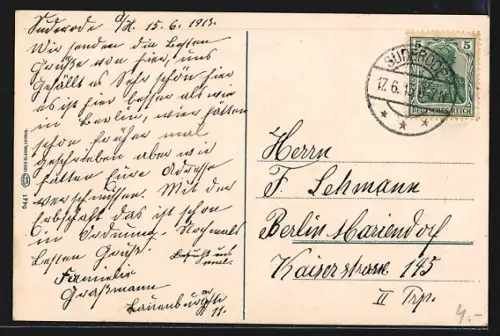 Suderode a/H. 15.6.1913.
Wir senden die besten
Grüße von hier, uns
gefällt es Sehr schön hier
es ist hier besser als wie
in Berlin, wier hätten
schon früher mal
geschrieben aber wir
hatten Eure Adresse
verschmissen. Mit der
Erbschaft das ist schon
in Ordnung. Nochmals
besten Gruß.
Besucht uns
mal.
Familie
Graßmann
Lauenburgstr
11.
SUDERODE
17.6.13
5 5
DEUTSCHES REICH
Herrn
F. Lehmann
Berlin Mariendorf
Kaiserstrasse 145
II Trp.
4.-